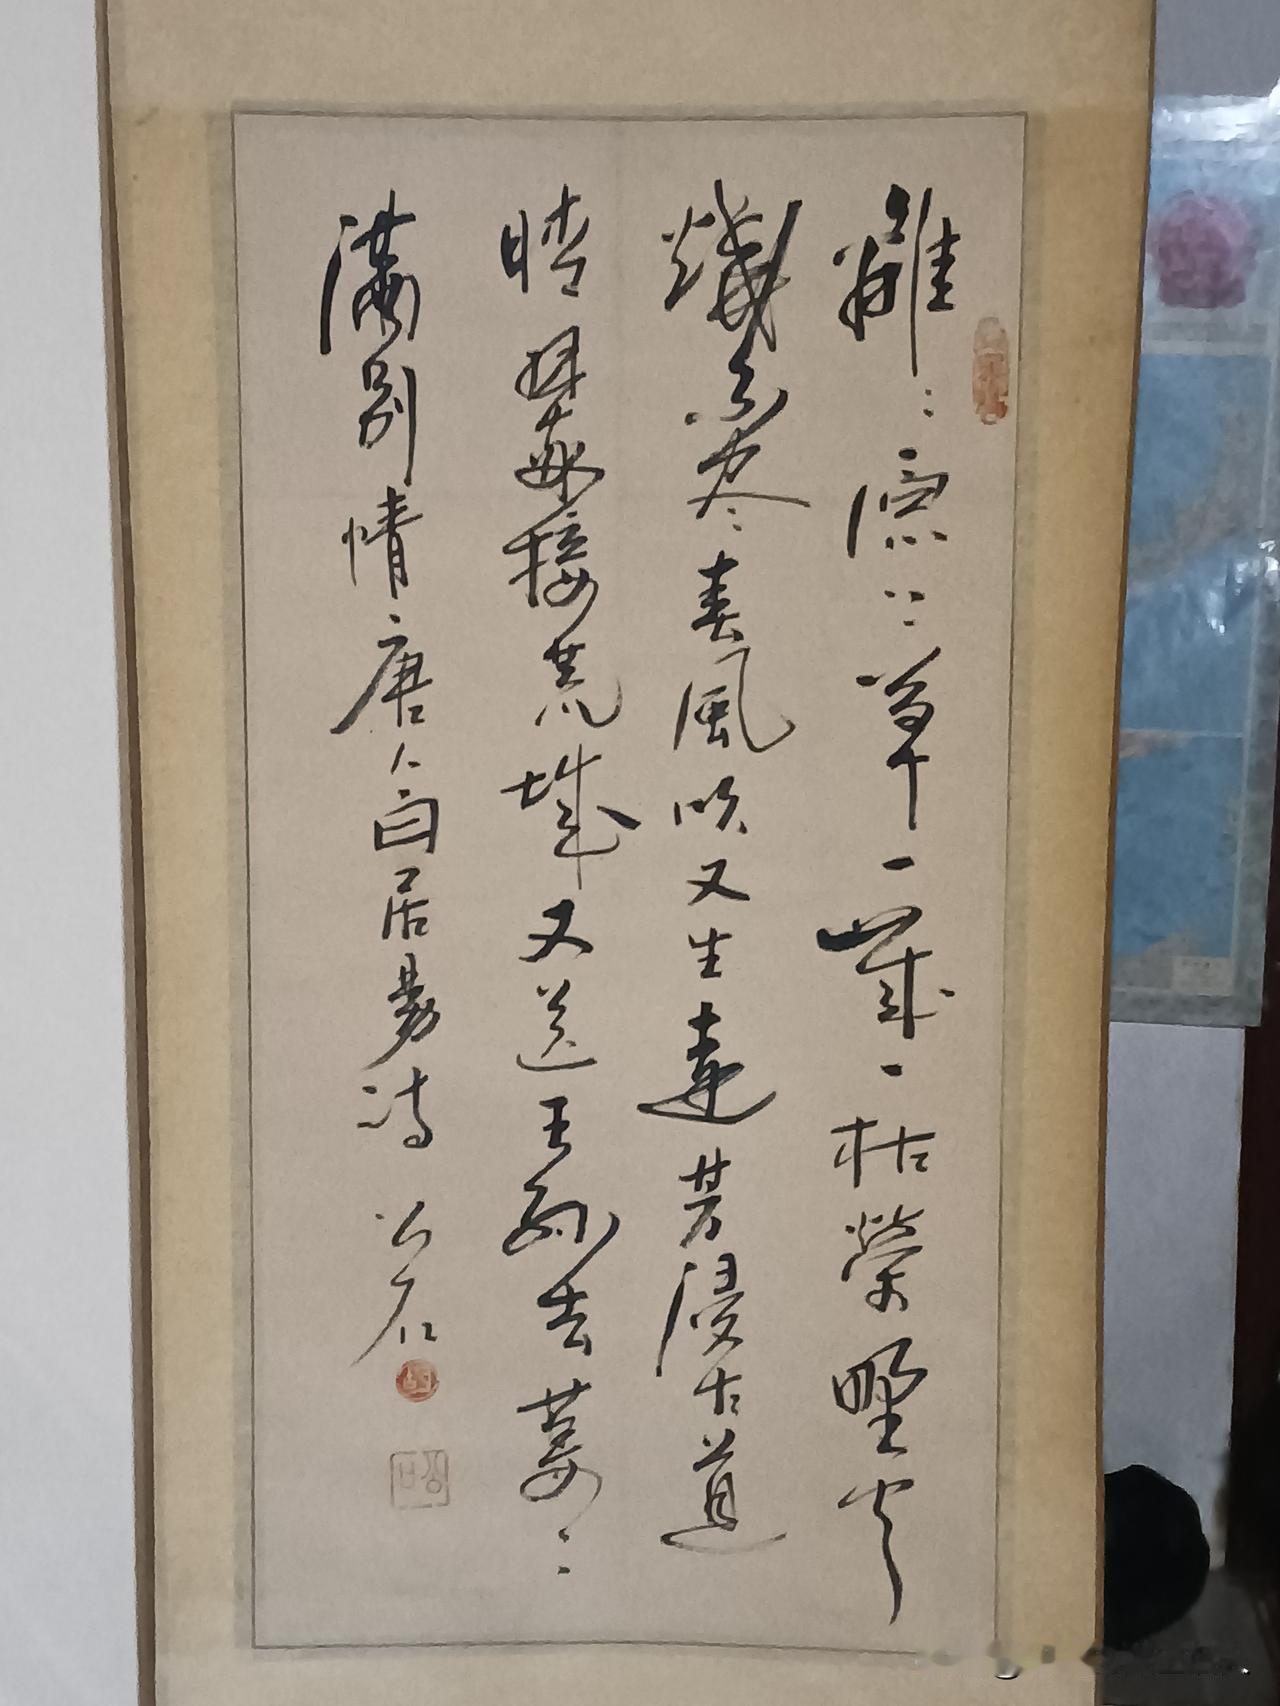 離〻原〻草一歲一枯榮野火
燒不盡春風吹又生遠芳侵古道
晴翠接荒城又送王孫去萋〻
滿別情唐人白居易詩 公石